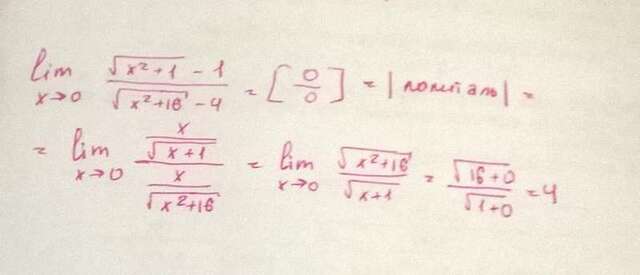 lim x→0 (√(x²+1) - 1)/(√(x²+16) - 4) = [0/0] = |лопиталь| =
= lim x→0 (x/√(x+1))/(x/√(x²+16)) = lim x→0 √(x²+16)/√(x+1) = √(16+0)/√(1+0) = 4